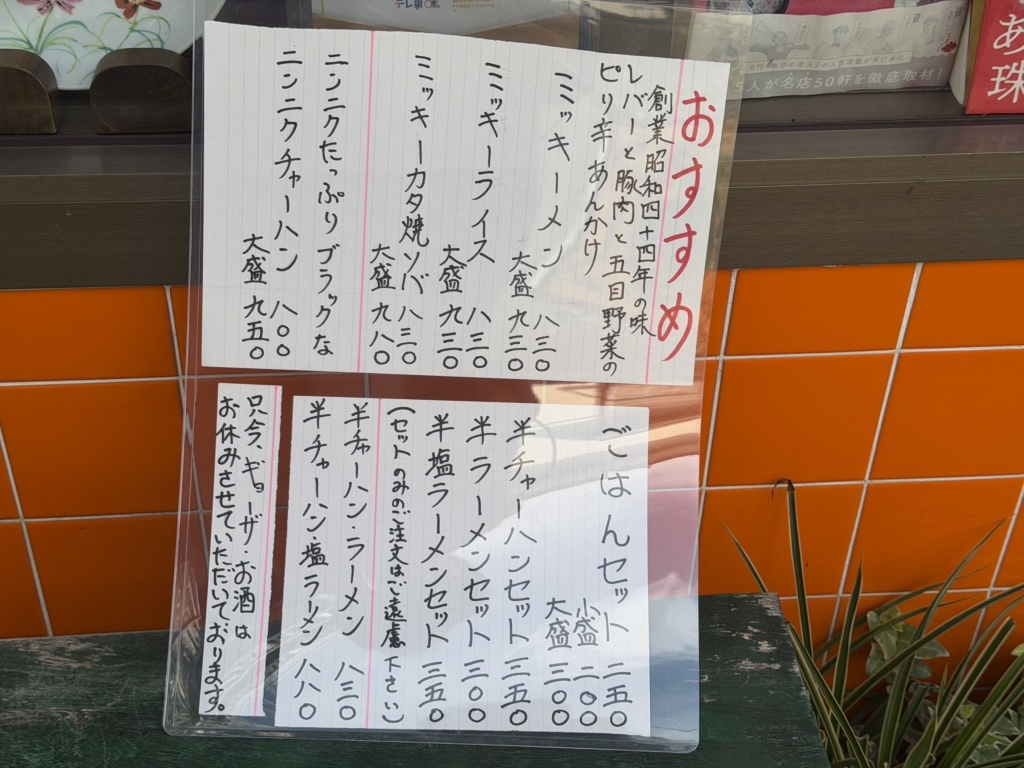 おすすめ
創業昭和四十四年の味
レバーと豚肉と五目野菜の
ピリ辛あんかけ
ミッキーメン 八三〇
大盛 九三〇
ミッキーライス 八三〇
大盛 九三〇
ミッキーカタ焼ソバ 八三〇
大盛 九八〇
ニンニクたっぷりブラックな
ニンニクチャーハン 八〇〇
大盛 九五〇
ごはんセット 二五〇
小盛 二〇〇
大盛 三〇〇
半チャーハンセット 三五〇
半ラーメンセット 三〇〇
半塩ラーメンセット 三五〇
(セットのみのご注文はご遠慮下さい)
半チャーハン・ラーメン 八三〇
半チャーハン・塩ラーメン 八八〇
只今、ギョーザ・お酒は
お休みさせていただいております。
テレ東
5人が名店50軒を徹底取材!
あ
珠